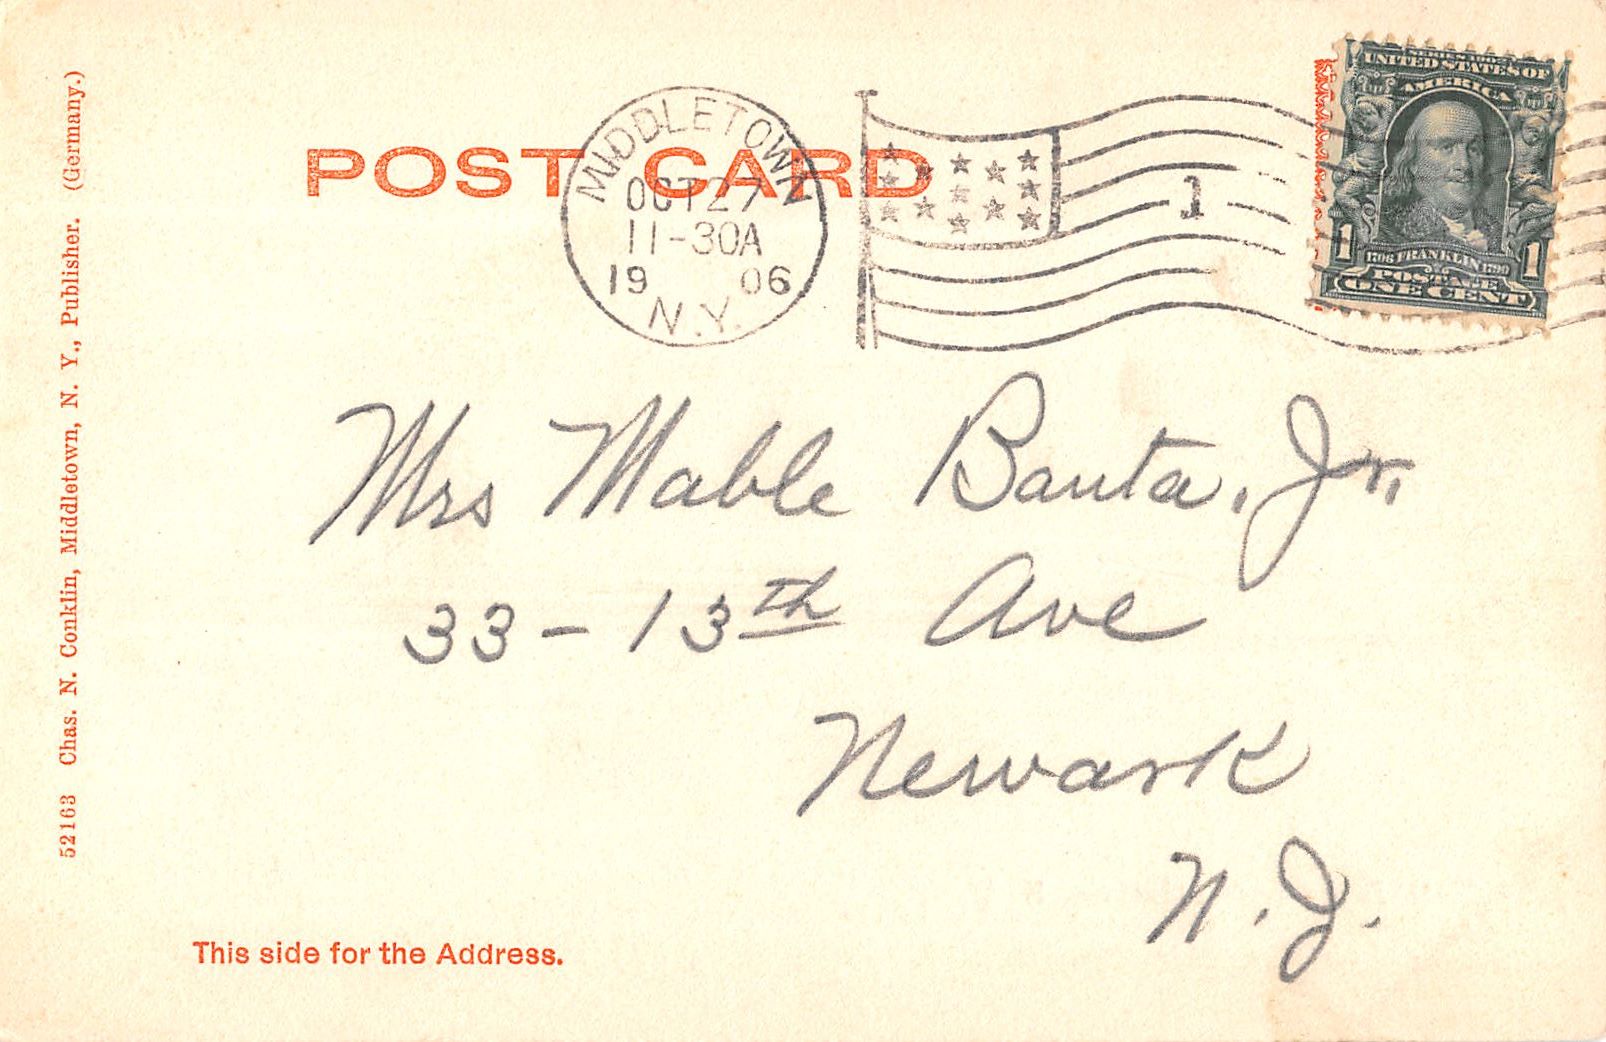 POST CARD
MIDDLETOWN
OCT 27
11-30A
1906
N.Y.
1
SERIES 1902
UNITED STATES OF
AMERICA
1706 FRANKLIN 1790
POSTAGE
1 ONE CENT 1
Mrs Mable Banta, Jr,
33 - 13th Ave
Newark
N. J.
This side for the Address.
52163 Chas. N. Conklin, Middletown, N. Y., Publisher. (Germany.)